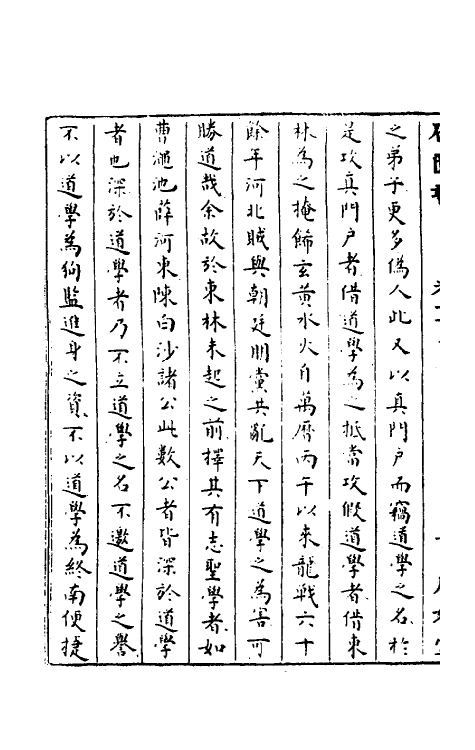 之弟子更多偽人此又以真門户而竊道學之名於
是攻真門户者借道學為之抵當攻假道學者借東
林為之掩飾玄黄水火自萬厯丙午以來龍戰六十
餘年河北賊與朝廷朋黨共亂天下道學之為害可
勝道哉余故於東林未起之前擇其有志聖學者如
曹澠池薛河東陳白沙諸公此數公者皆深於道學
者也深於道學者乃不立道學之名不邀道學之譽
不以道學為狥監進身之資不以道學為終南便捷